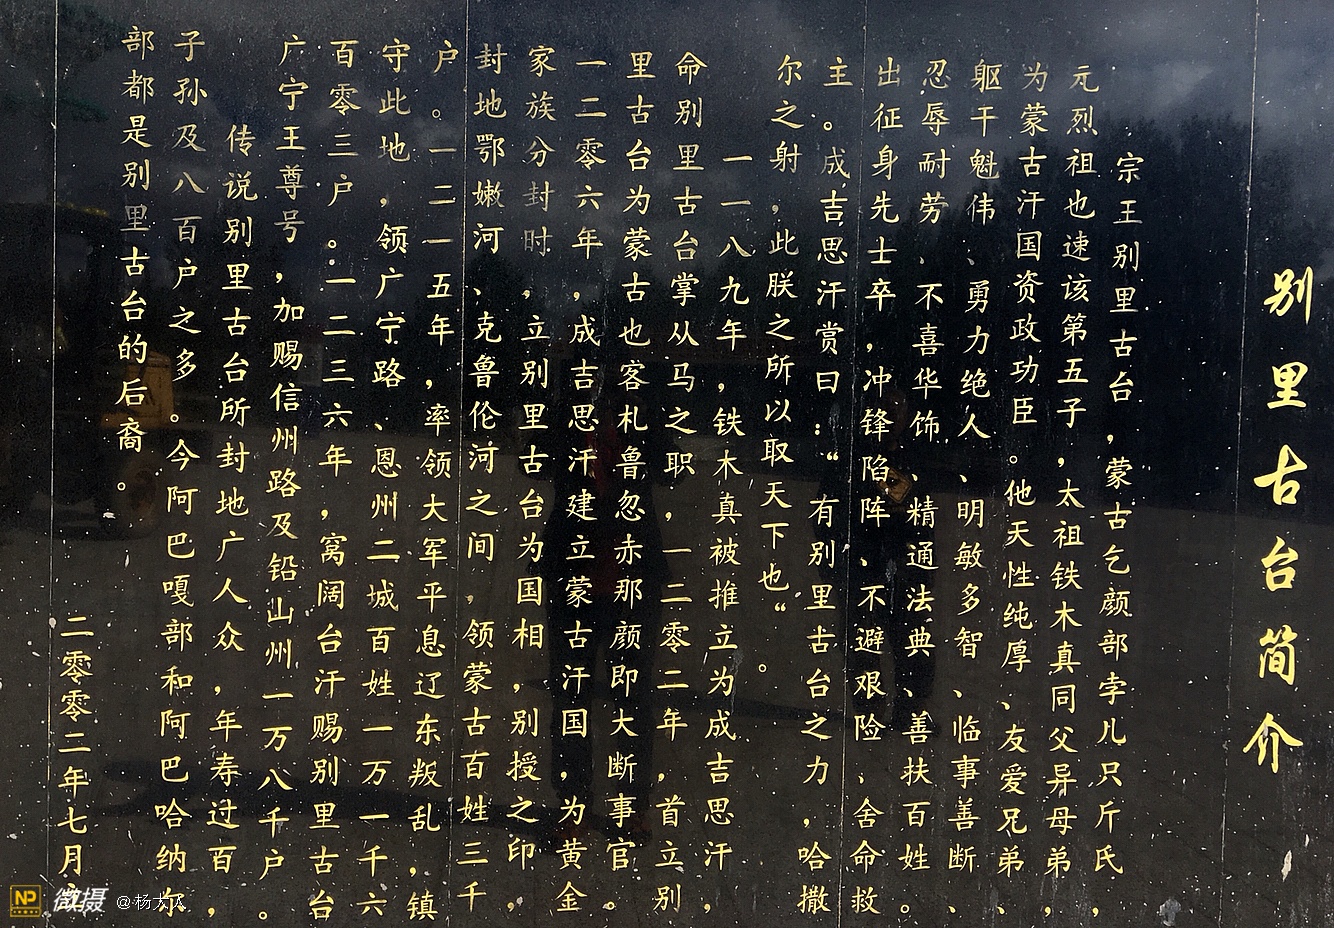 别里古台简介
宗王别里古台，蒙古乞颜部孛儿只斤氏，
元烈祖也速该第五子，太祖铁木真同父异母弟，
为蒙古汗国资政功臣。他天性纯厚、友爱兄弟、
躯干魁伟、勇力绝人、明敏多智、临事善断、
忍辱耐劳、不喜华饰、精通法典、善扶百姓。
出征身先士卒，冲锋陷阵、不避艰险、舍命救
主。成吉思汗赏曰：“有别里古台之力，哈撒
尔之射，此朕之所以取天下也“。
一一八九年，铁木真被推立为成吉思汗，
命别里古台掌从马之职，一二零二年，首立别
里古台为蒙古也客札鲁忽赤那颜即大断事官。
一二零六年，成吉思汗建立蒙古汗国，为黄金
家族分封时，立别里古台为国相，别授之印，
封地鄂嫩河、克鲁伦河之间，领蒙古百姓三千
户。一二一五年，率领大军平息辽东叛乱，镇
守此地，领广宁路、恩州二城百姓一万一千六
百零三户。一二三六年，窝阔台汗赐别里古台
广宁王尊号，加赐信州路及铅山州一万八千户。
传说别里古台所封地广人众，年寿过百，
子孙及八百户之多。今阿巴嘎部和阿巴哈纳尔
部都是别里古台的后裔。
二零零二年七月立
NP
微摄 @杨大人